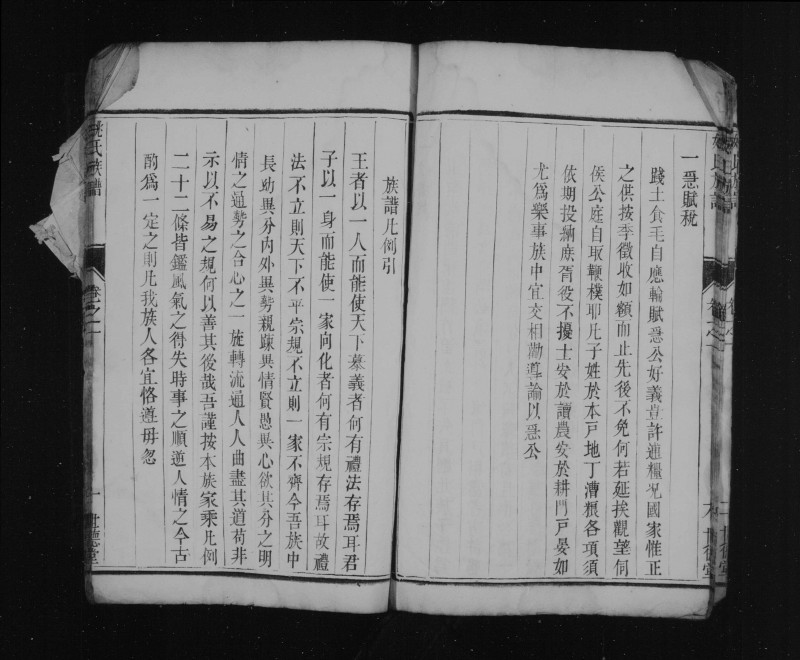 一急賦稅
踐土食毛自應輸賦急公好義豈許逋糧况國家惟正
之供按季徵收如額而止先後不免何若延挨觀望伺
侯公庭自取鞭樸耶凡子姓於本戶地丁漕粮各項須
依期投納庶胥役不擾士安於讀農安於耕門戶晏如
尤為樂事族中宜交相勸導論以急公
族譜凡例引
王者以一人而能使天下慕義者何有禮法存焉耳君
子以一身而能使一家向化者何有宗規存焉耳故禮
法不立則天下不平宗規不立則一家不齊今吾族中
長幼異分內外異勢親疎異情賢愚異心欲其分之明
情之通勢之合心之一旋轉流通人人曲盡其道苟非
示以不易之規何以善其後哉吾謹按本族家乘凡例
二十二條皆鑑風氣之得失時事之順逆人情之今古
酌為一定之則凡我族人各宜恪遵毋忽
氏族譜
卷之二
一
世德堂